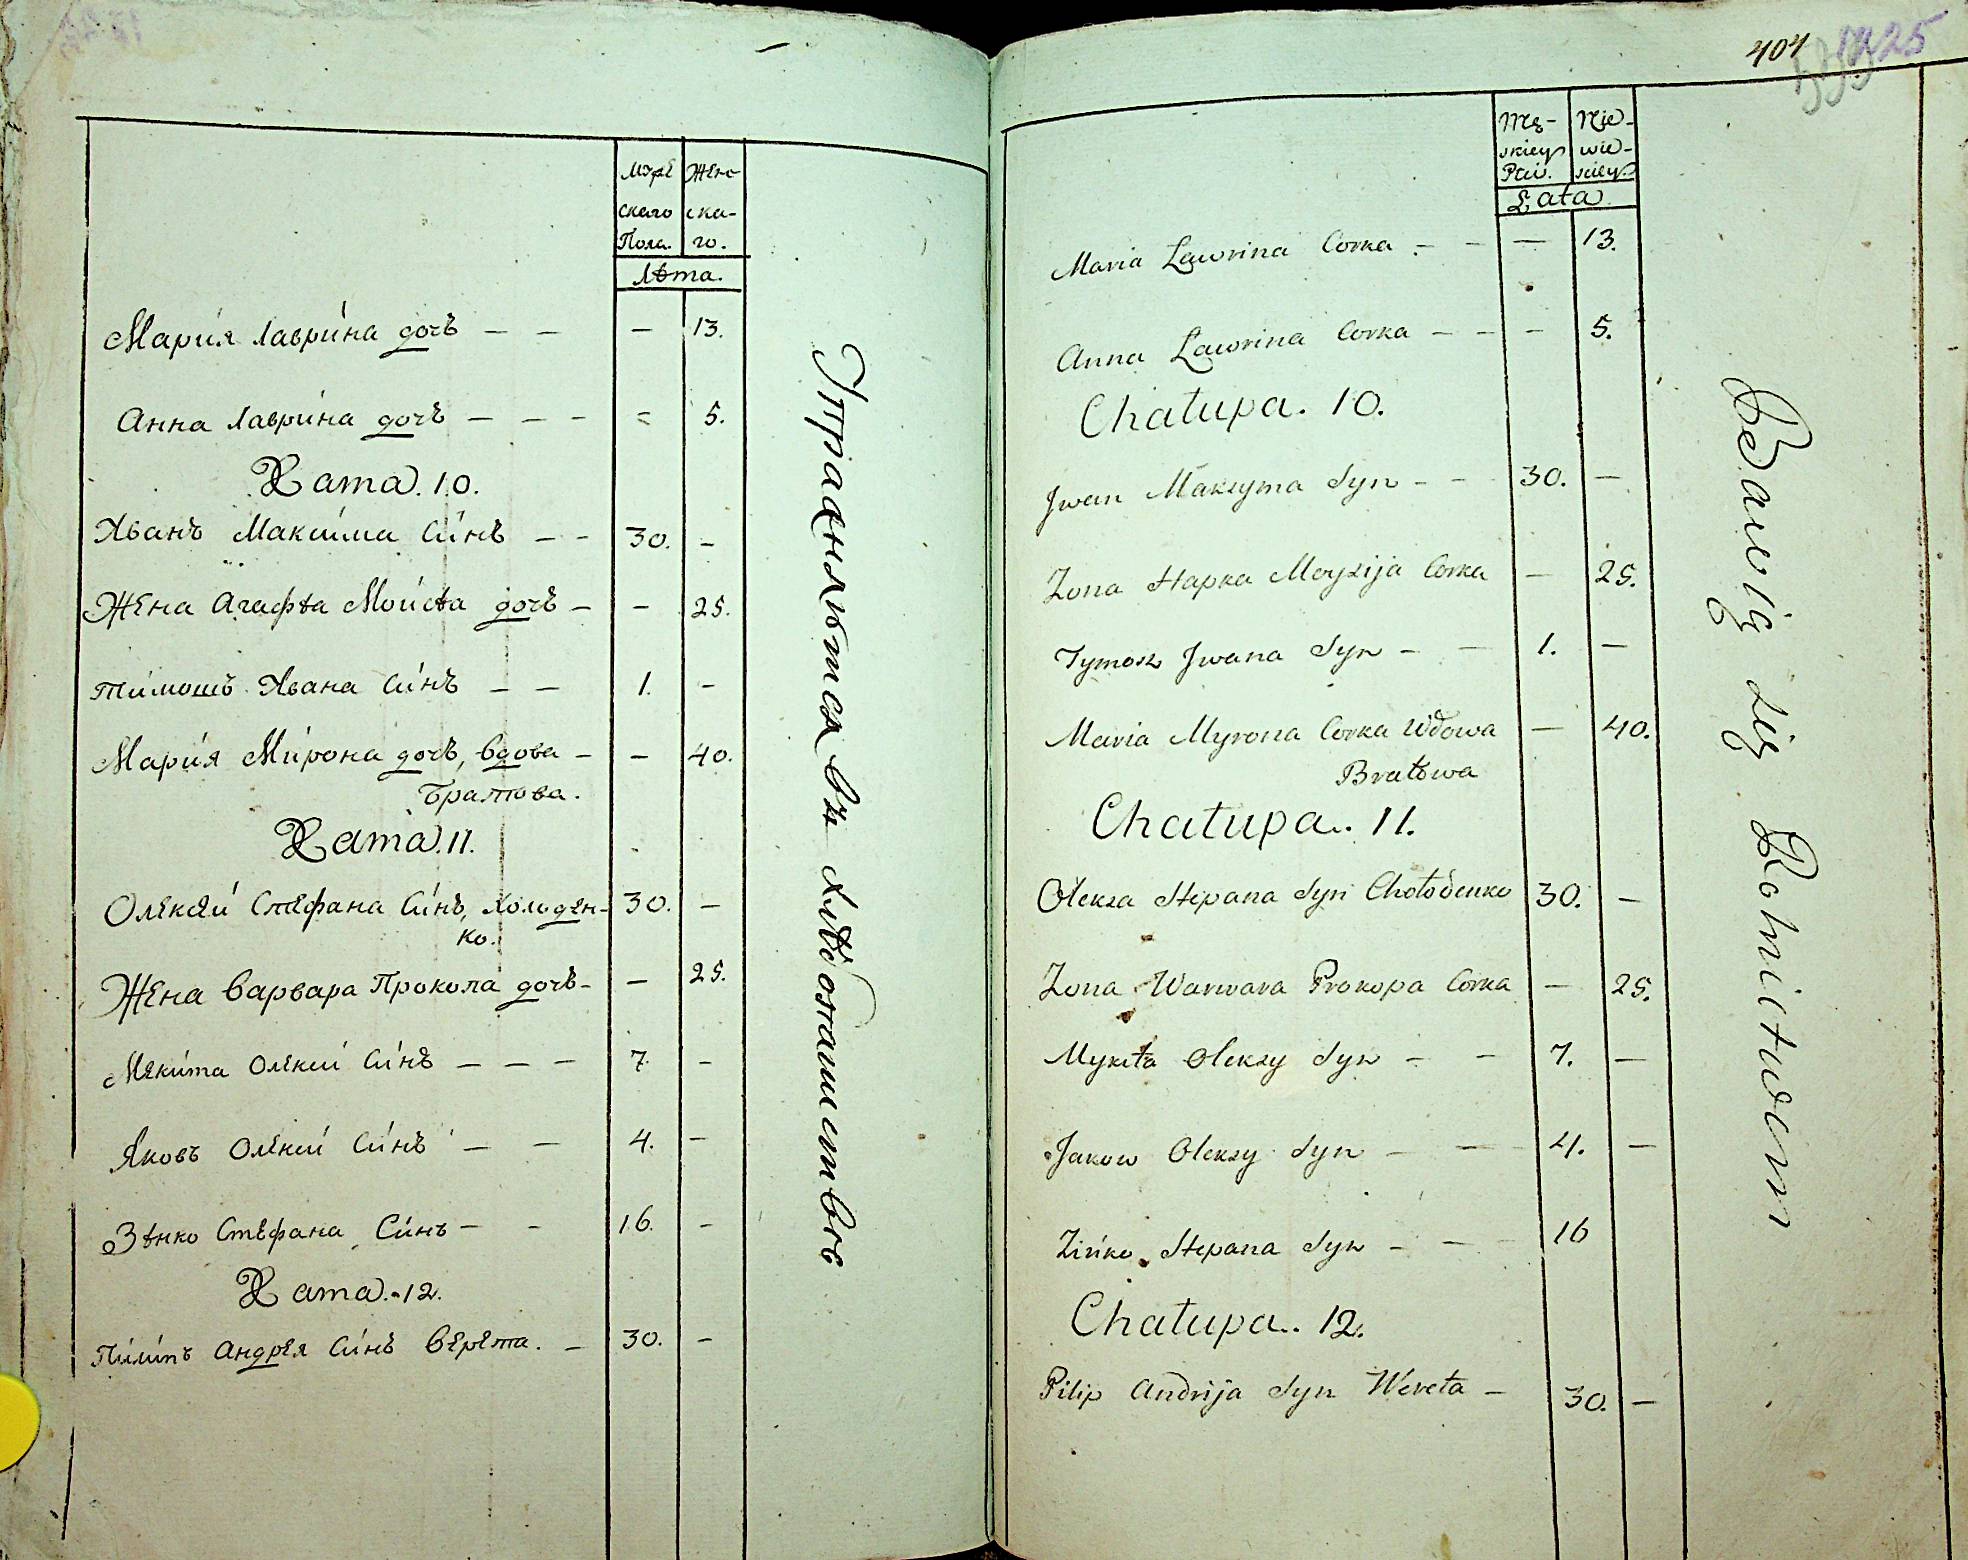 Мужескаго Пола.
Женскаго.
Лѣта.
Марія Лавріна дочь — — — 13.
Анна Лавріна дочь — — — 5.
Хата. 10.
Іванъ Максима Сінъ — — 30. —
Жена Агафѣа Моисѣа дочь — — 25.
Тімошъ Івана Сінъ — — 1. —
Марія Мірона дочь, вдова — — 40.
братова.
Хата. 11.
Олексѣй Стефана Сінъ, Холоден- 30. —
ко.
Жена Варвара Прокопа дочь — — 25.
Мекіта Олексій Сінъ — — — 7. —
Яковъ Олексій Сінъ — — 4. —
Зѣнко Стефана Сінъ — — 16. —
Хата. 12.
Піліпъ Андрея Сінъ Верета. — 30. —
Упражняются въ хлѣбопашествѣ
404
Mę-
skiey
Płci.
Nie-
wie-
sciey.
Lata
Maria Lawrina Corka — — — 13.
Anna Lawrina Corka — — — 5.
Chałupa. 10.
Jwan Maksyma Syn — — 30. —
Zona Hapka Moysija Corka — 25.
Tymosz Jwana Syn — — 1. —
Maria Myrona Corka Wdowa — 40.
Bratowa
Chałupa. 11.
Oleksa Stepana Syn Chołodenko 30. —
Zona Warwara Prokopa Corka — 25.
Mykita Oleksy Syn — — 7. —
Jakow Oleksy Syn — — 4. —
Zińko Stepana Syn — — 16
Chałupa. 12.
Pilip Andrija Syn Wereta — 30. —
Bawią się Rolnictwem